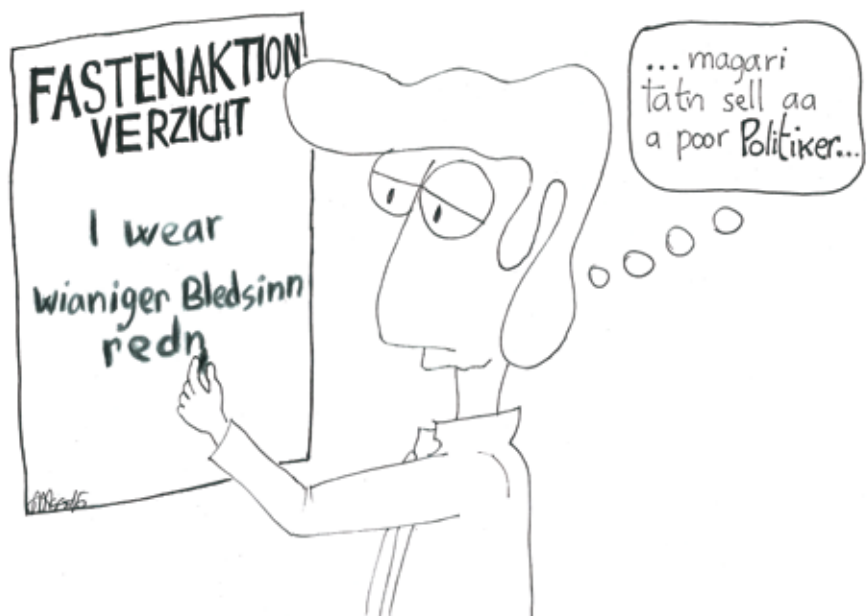 FASTENAKTION
VERZICHT
I wear
wianiger Bledsinn
redn
...magari
tatn sell aa
a poor Politiker...